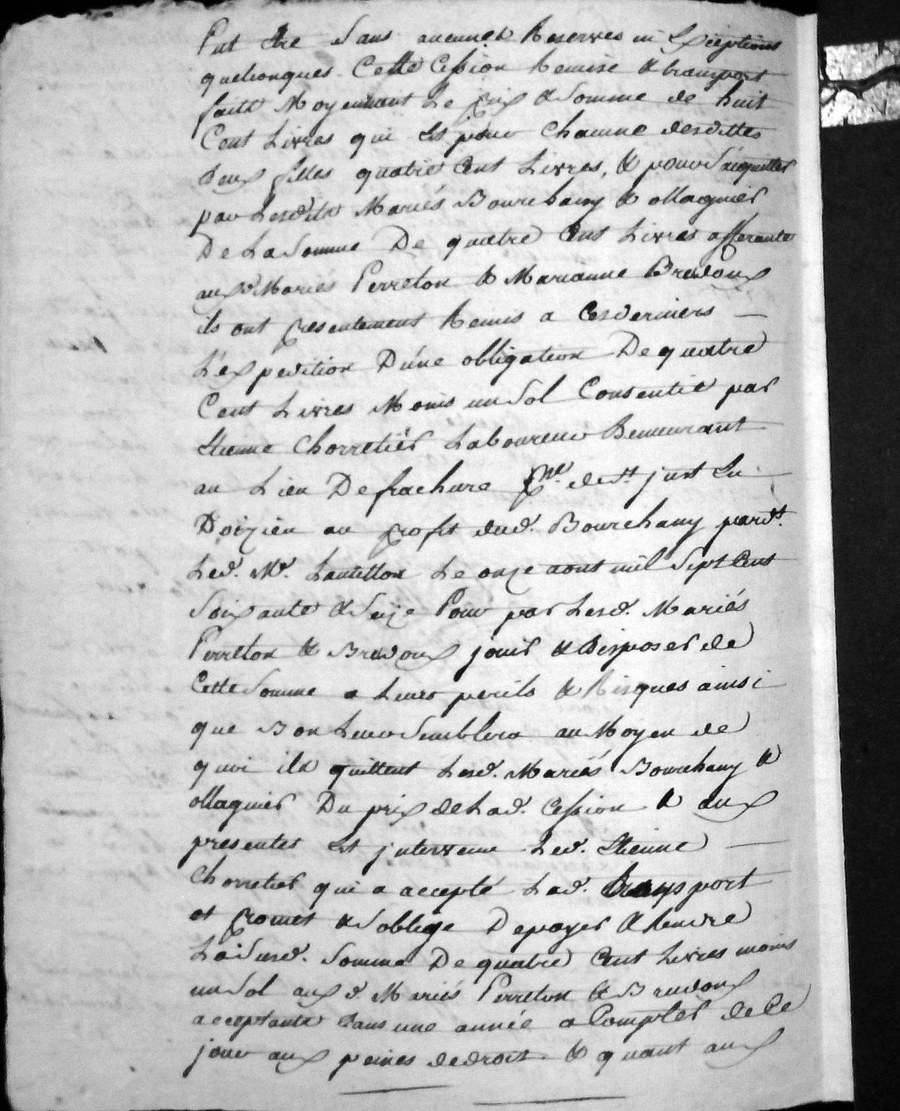 Put Etre Sans aucunes Reserves ni Exceptions
quelconques. Cette Cession Remise & transport
faits Moyennant Le prix & Somme de huit
Cent Livres qui Est pour Chacune desdittes
deux filles quatre Cent Livres, & pour S'acquitter
par Lesdits Mariés Bourchany & ollagnier
De La Somme De quatre Cent Livres afferante
aux d. Mariés Perreton & Marianne Brudoux
ils ont presentement Remis a Cesderniers —
L'Expedition D'une obligation De quattre
Cent Livres Moins un Sol Consentie par
Etienne Chorretier Laboureur Demeurant
au Lieu De frachure de St. just Lu
Doizieu au profit dud. Bourchany pardt.
Led. Me. Lantillon Le onze aout mil Sept Cent
Soixante & Seize Pour par Lesd. Mariés
Perreton & Brudoux jouir & Disposer de
Cette Somme a Leurs perils & Risques ainsi
que Bon Leur Semblera au Moyen de
quoi ils quittent Lesd. Mariés Bourchany &
ollagnier Du prix de Lad. Cession & aux
presentes Est intervenu Led. Etienne —
Chorretier qui a accepté Led. transport
et promet & S'oblige De payer & Rendre
La Susd. Somme De quatre Cent Livres moins
un Sol aux d. Mariés Perreton & Brudoux
acceptants Dans une année a Compter de Ce
jour aux peines de droit. & quant aux